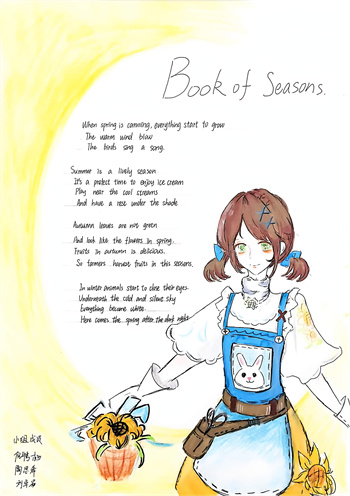 Book of Seasons.
When spring is cumming, everything start to grow
The warm wind blow
The birds sing a song.
Summer is a lively season
It's a prefect time to enjoy ice cream
Play near the cool streams
And have a rose under the shade
Autumn leaves are not green
And look like the flowers in spring.
Fruits in autumn is delicious.
So farmers harvest fruits in this seasons.
In winter animals start to close their eyes.
Underneath the cold and silent sky
Everything became white
Here comes the spring after the dark night
小组成员